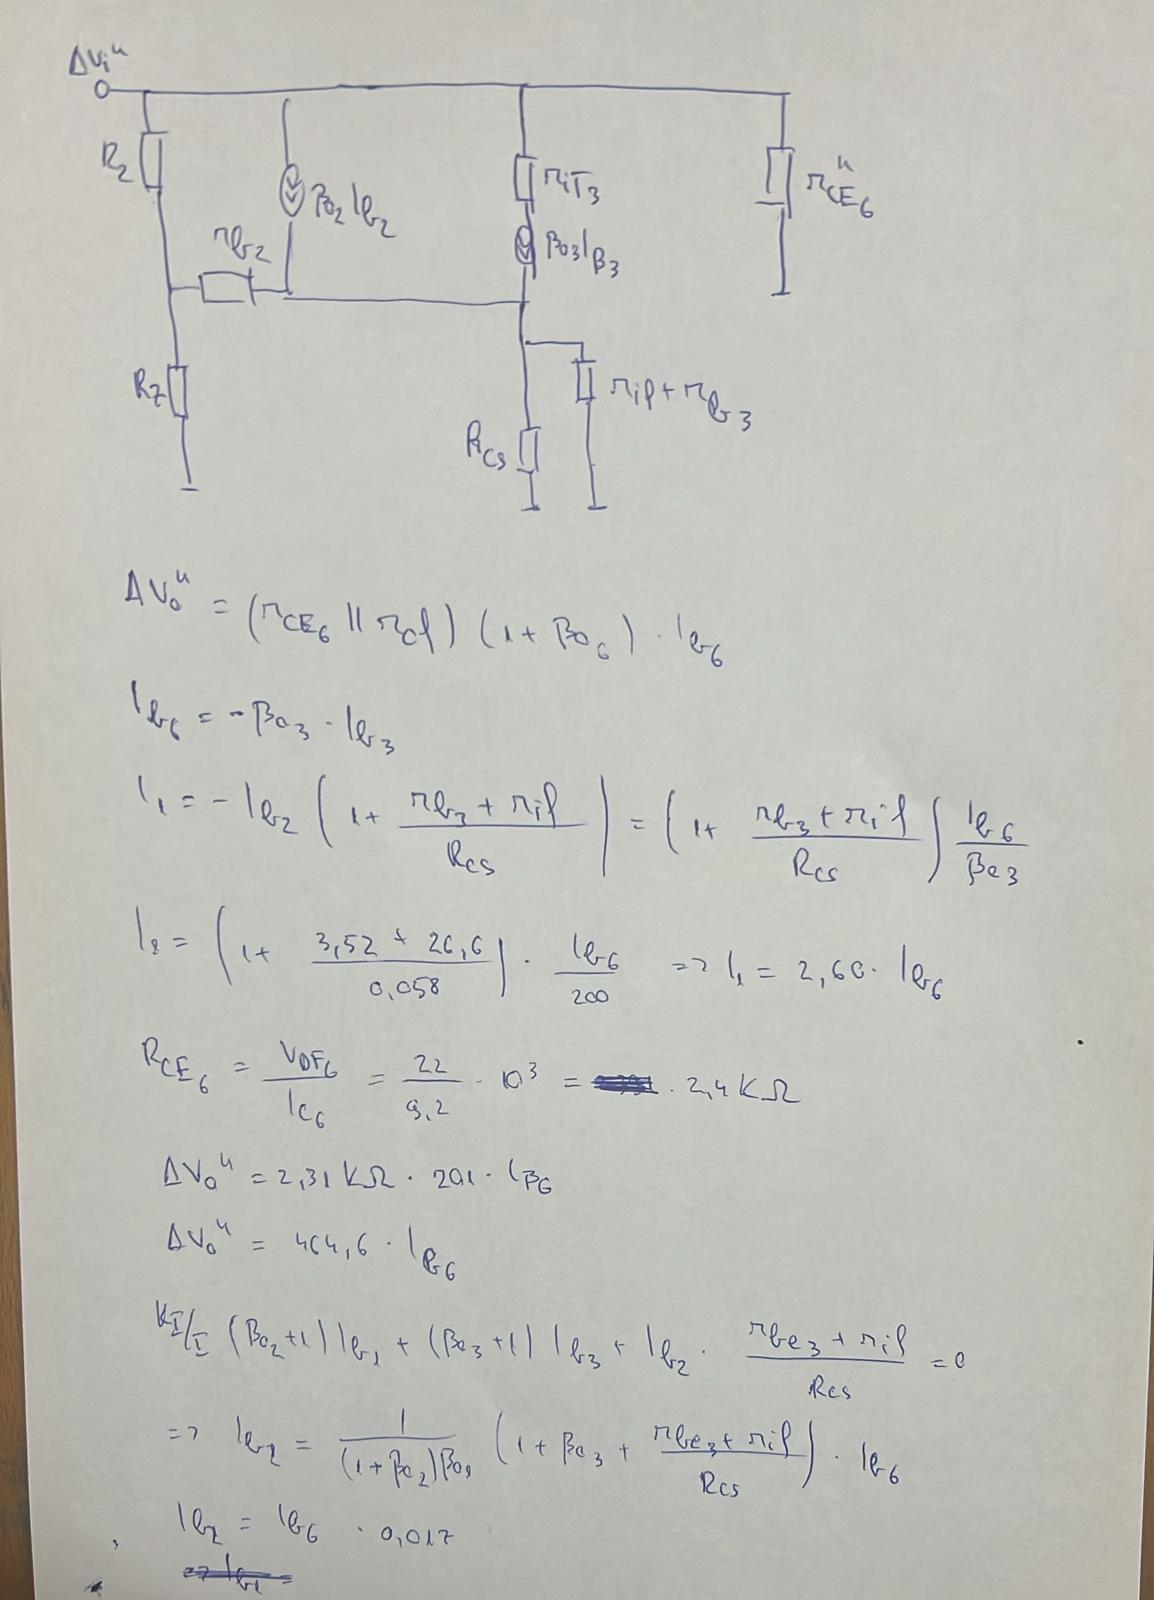 ΔVi"
R2
β02 Ib2
rb2
riT3
β03 IB3
rCE6"
R7
Rcs
rif + rb3
ΔVo" = (rCE6 || rcf) (1 + β06) · Ib6
Ib6 = -β03 · Ib3
I1 = -Ib2 (1 + (rb3 + rif) / Rcs) = (1 + (rb3 + rif) / Rcs) Ib6 / β03
= (1 + (3,52 + 26,6) / 0,058) · Ib6 / 200 => I1 = 2,60 · Ib6
RCE6 = / IC6 = 22 / 9,2 · 10^3 = · 2,4 KΩ
ΔVo" = 2,31 KΩ · 201 · IB6
ΔVo" = 464,6 · IB6
KI/I (β02+1) Ib1 + (β03+1) Ib3 + Ib2 · (rbe3 + rif) / Rcs = 0
=> Ib2 = 1 / (1+β02)β03 (1 + β03 + (rbe3 + rif) / Rcs) · Ib6
Ib2 = Ib6 · 0,017